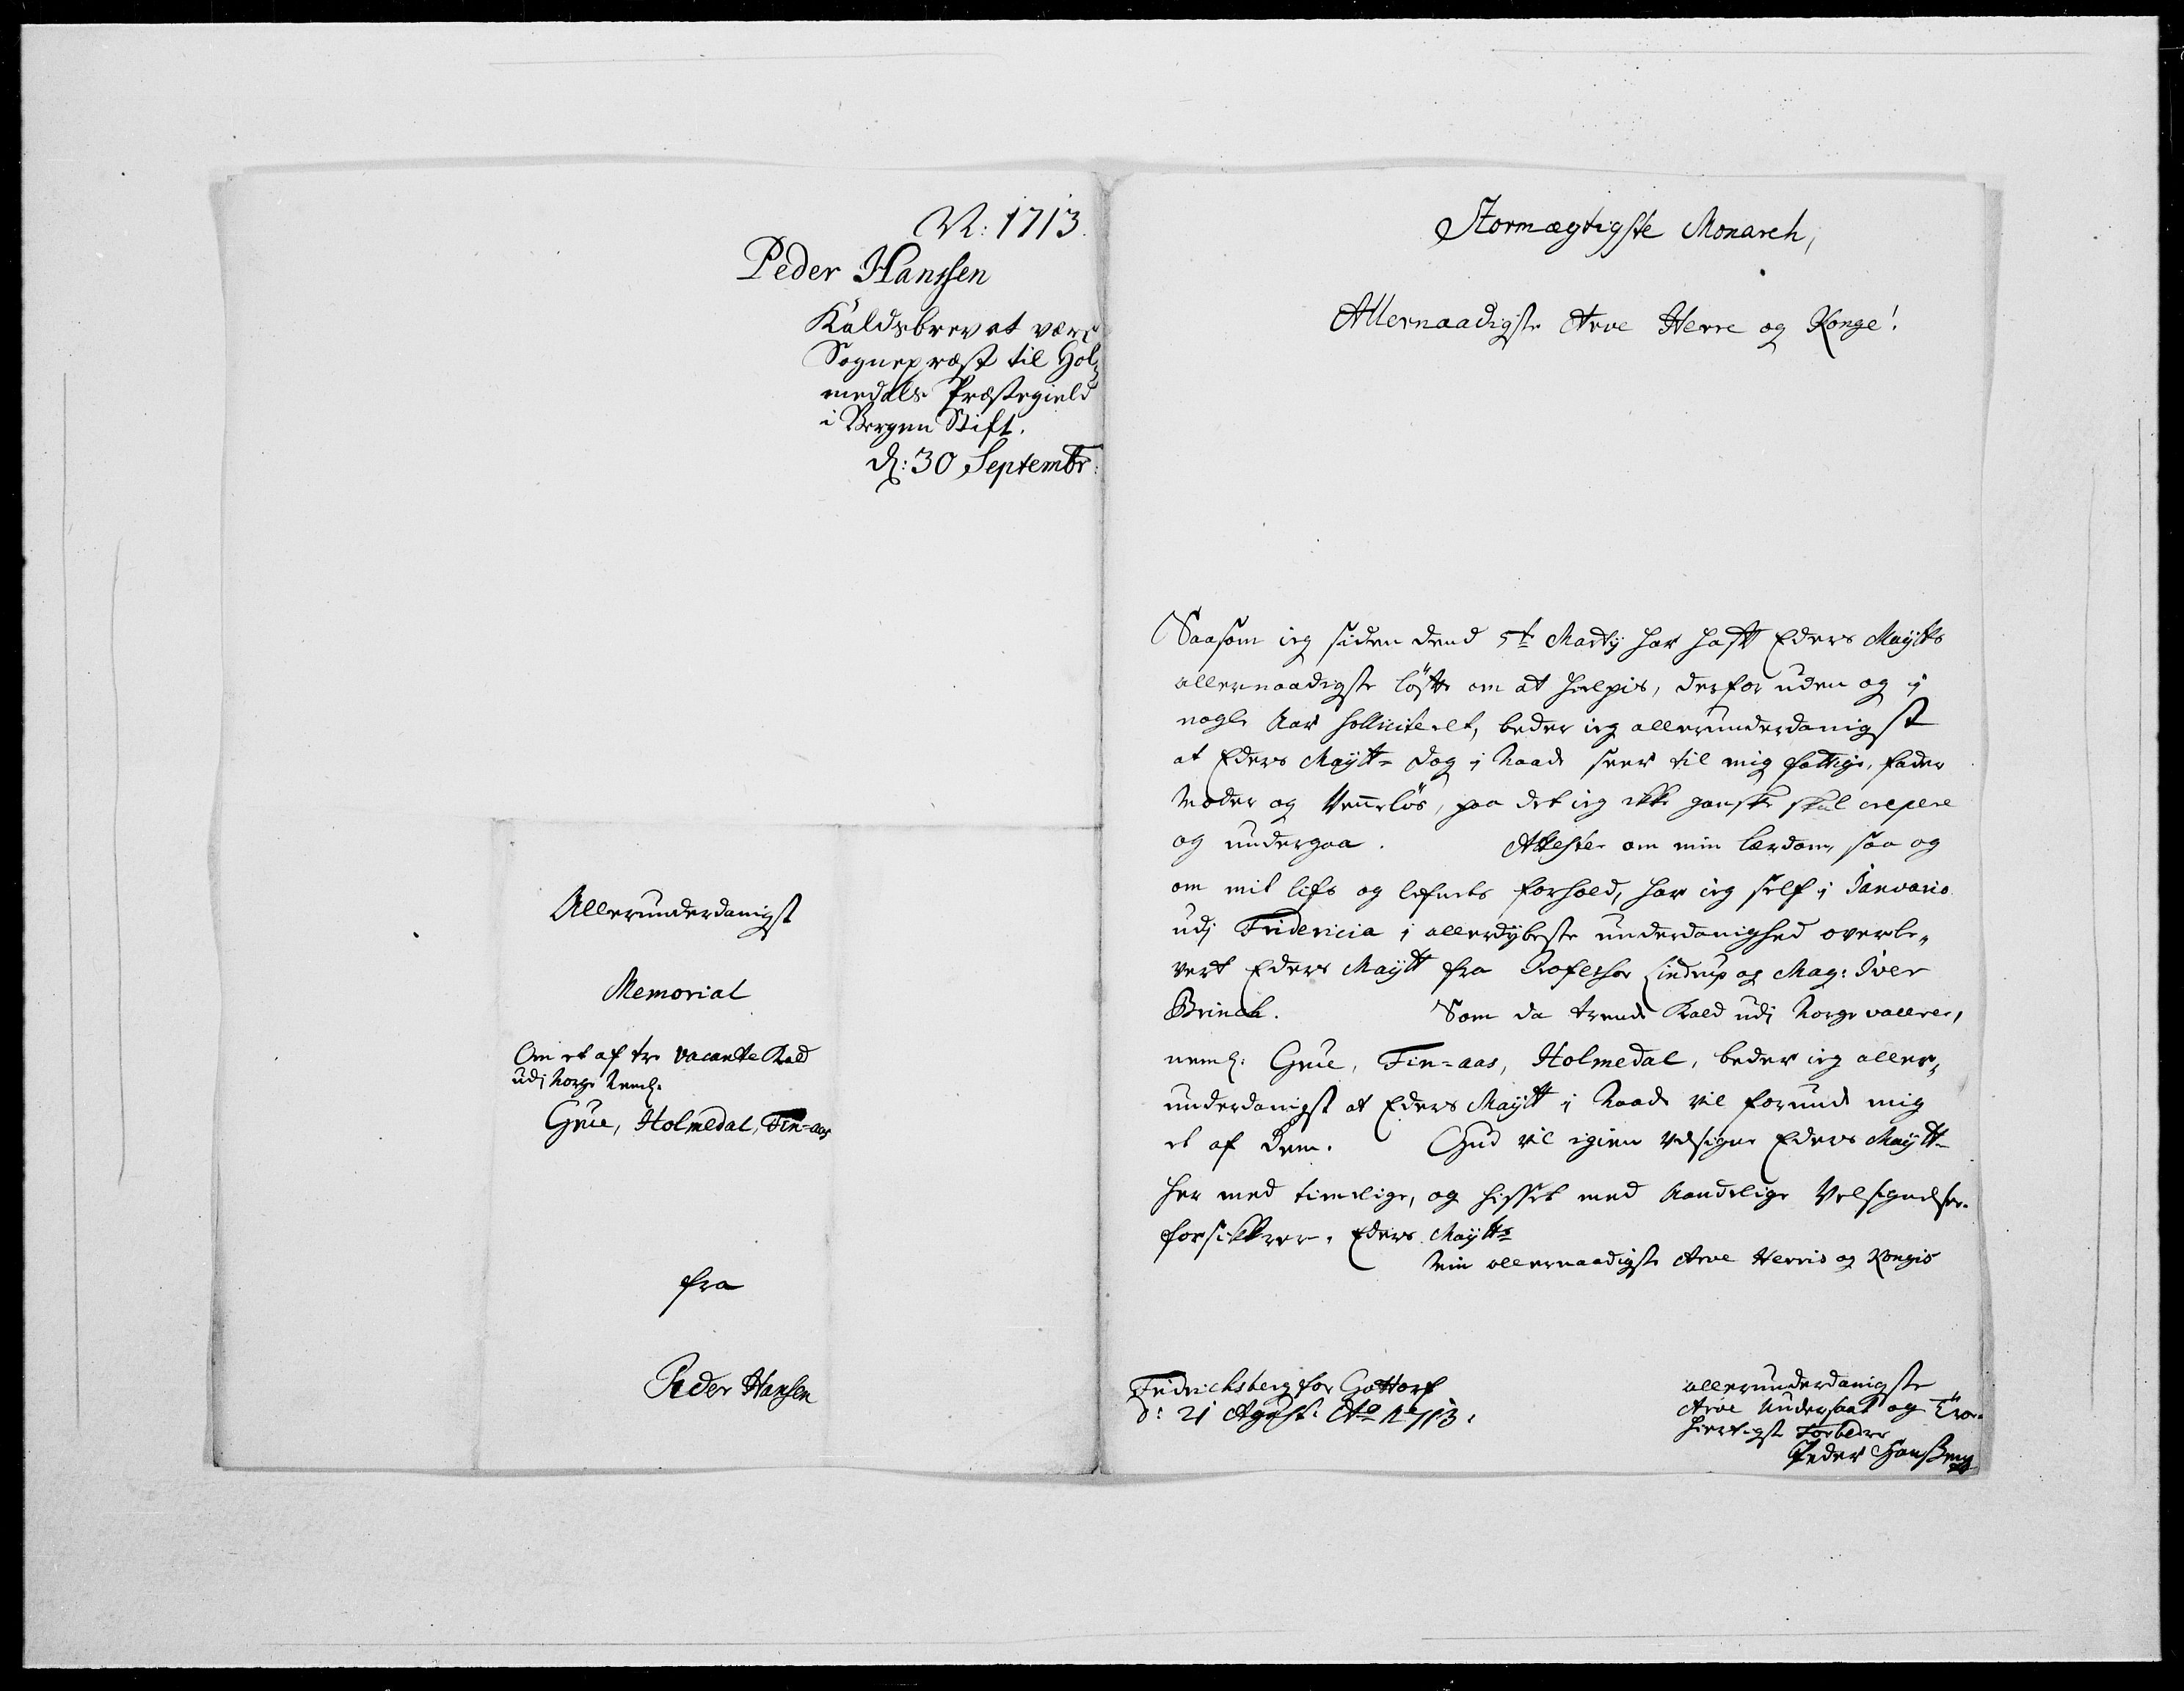 N: 1713.
Peder Hanssen
Kaldsbrev at være
Sognepræst til Hol¬
medals Præstegield
i Bergen Stift.
d: 30 Septembr:
Allerunderdanigst
Memorial
Om et af tre vacante Kald
udj Norge Neml.
Grue, Holmedal, Fin-aas
fra
Peder Hansen
Stormægtigste Monarch,
Allernaadigste Arve Herre og Konge!
Saasom ieg siden dend 5te Martij har haft Eders Maÿtts
allernaadigste løfte om at hielpis, desforuden og i
nogle Aar solliciteelt, beder ieg allerunderdanigst
at Eders Maÿtt dog i Naade seer til mig fattige, fader
Moder og Venneløs, paa det ieg ikke ganske skal crepere
og undergaa. Attester om min lærdom, saa og
om mit lifs og lefnets forhold, har ieg self i Janvario
udj Fridericia i allerdÿbeste underdanighed overle¬
vert Eders Maÿtt fra Professor Lindrup og Mag: Iver
Brinck. Som da trende Kald udj Norge vallerer,
neml: Grue, Fin-aas, Holmedal, beder ieg aller¬
underdanigst at Eders Maÿtt i Naade vil forunde mig
et af Dem. Gud vil igien velsigne Eders Maÿtt
her med timelige, og hisset med Aandelige Velsignelser.
forsikkrer. Eders Maÿtts
Min allernaadigste Arve Herris og Kongis
Fridrichsberg for Gottorf
d: 21 Agust: Ao 1713.
allerunderdanigste
Arve Undersaat og Troe¬
hiertigste Forbedere
Peder Hanssen